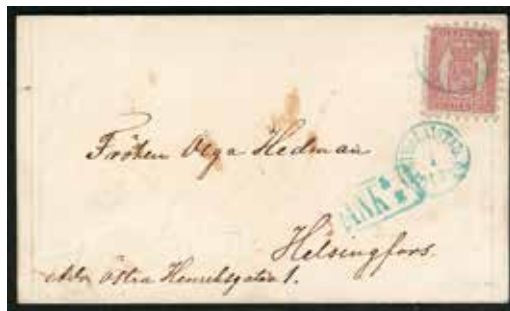 Fröken Olga Hedman
ANK
Helsingfors.
Adr. Östra Henriksgatan 1.